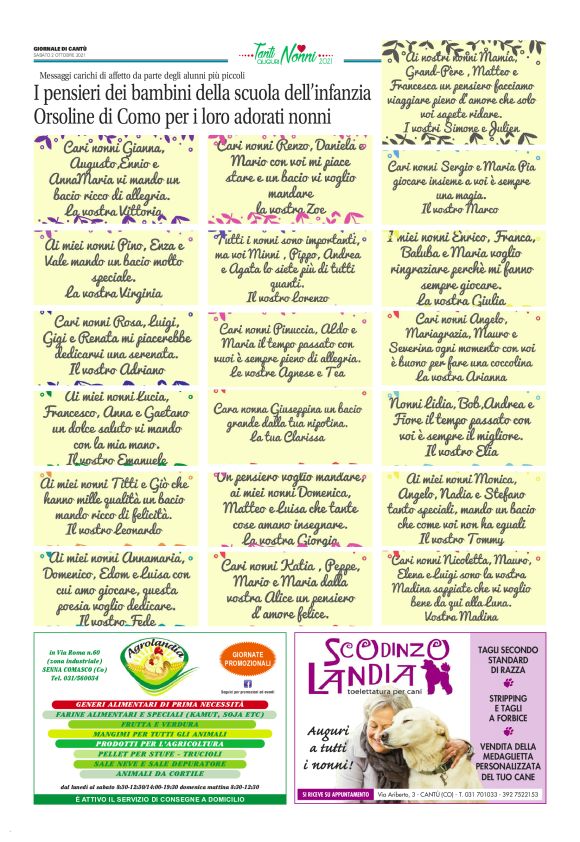 GIORNALE DI CANTÙ
SABATO 2 OTTOBRE 2021
Tanti
AUGURI
Nonni
2021
Messaggi carichi di affetto da parte degli alunni più piccoli
I pensieri dei bambini della scuola dell'infanzia
Orsoline di Como per i loro adorati nonni
Cari nonni Gianna,
Augusto,Ennio e
AnnaMaria vi mando un
bacio ricco di allegria.
La vostra Vittoria
Cari nonni Renzo, Daniela e
Mario con voi mi piace
stare e un bacio vi voglio
mandare
la vostra Zoe
Ai nostri nonni Mamia,
Grand-Père , Matteo e
Francesca un pensiero facciamo
viaggiare pieno d'amore che solo
voi sapete ridare.
I vostri Simone e Julien
Cari nonni Sergio e Maria Pia
giocare insieme a voi è sempre
una magia.
Il vostro Marco
Ai miei nonni Pino, Enza e
Vale mando un bacio molto
speciale.
La vostra Virginia
Tutti i nonni sono importanti,
ma voi Minni , Pippo, Andrea
e Agata lo siete più di tutti
quanti.
Il vostro Lorenzo
I miei nonni Enrico, Franca,
Baluba e Maria voglio
ringraziare perchè mi fanno
sempre giocare.
La vostra Giulia
Cari nonni Rosa, Luigi,
Gigi e Renata mi piacerebbe
dedicarvi una serenata.
Il vostro Adriano
Cari nonni Pinuccia, Aldo e
Maria il tempo passato con
vuoi è sempre pieno di allegria.
Le vostre Agnese e Tea
Cari nonni Angelo,
Mariagrazia, Mauro e
Severina ogni momento con voi
è buono per fare una coccolina
La vostra Arianna
Ai miei nonni Lucia,
Francesco, Anna e Gaetano
un dolce saluto vi mando
con la mia mano.
Il vostro Emanuele
Cara nonna Giuseppina un bacio
grande dalla tua nipotina.
La tua Clarissa
Nonni Lidia, Bob,Andrea e
Fiore il tempo passato con
voi è sempre il migliore.
Il vostro Elia
Ai miei nonni Titti e Giò che
hanno mille qualità un bacio
mando ricco di felicità.
Il vostro Leonardo
Un pensiero voglio mandare,
ai miei nonni Domenica,
Matteo e Luisa che tante
cose amano insegnare.
La vostra Giorgia
Ai miei nonni Monica,
Angelo, Nadia e Stefano
tanto speciali, mando un bacio
che come voi non ha eguali
Il vostro Tommy
Ai miei nonni Annamaria,
Domenico, Edom e Luisa con
cui amo giocare, questa
poesia voglio dedicare.
Il vostro Fede
Cari nonni Katia , Peppe,
Mario e Maria dalla
vostra Alice un pensiero
d'amore felice.
Cari nonni Nicoletta, Mauro,
Elena e Luigi sono la vostra
Madina sappiate che vi voglio
bene da qui alla Luna.
Vostra Madina
in Via Roma n.60
(zona industriale)
SENNA COMASCO (Co)
Tel. 031/560034
Agrolandia
GIORNATE
PROMOZIONALI
Seguici per promozioni ed eventi
GENERI ALIMENTARI DI PRIMA NECESSITÀ
FARINE ALIMENTARI E SPECIALI (KAMUT, SOJA ETC)
FRUTTA E VERDURA
MANGIMI PER TUTTI GLI ANIMALI
PRODOTTI PER L'AGRICOLTURA
PELLET PER STUFE - TRUCIOLI
SALE NEVE E SALE DEPURATORE
ANIMALI DA CORTILE
dal lunedi al sabato 8:30-12:30/14:00-19:30 domenica mattina 8:30-12:30
È ATTIVO IL SERVIZIO DI CONSEGNE A DOMICILIO
SCODINZO
LANDIA
toelettatura per cani
Auguri
a tutti
i nonni!
TAGLI SECONDO
STANDARD
DI RAZZA
STRIPPING
E TAGLI
A FORBICE
VENDITA DELLA
MEDAGLIETTA
PERSONALIZZATA
DEL TUO CANE
SI RICEVE SU APPUNTAMENTO
Via Ariberto, 3 - CANTÙ (CO) - T. 031 701033 - 392 7522153